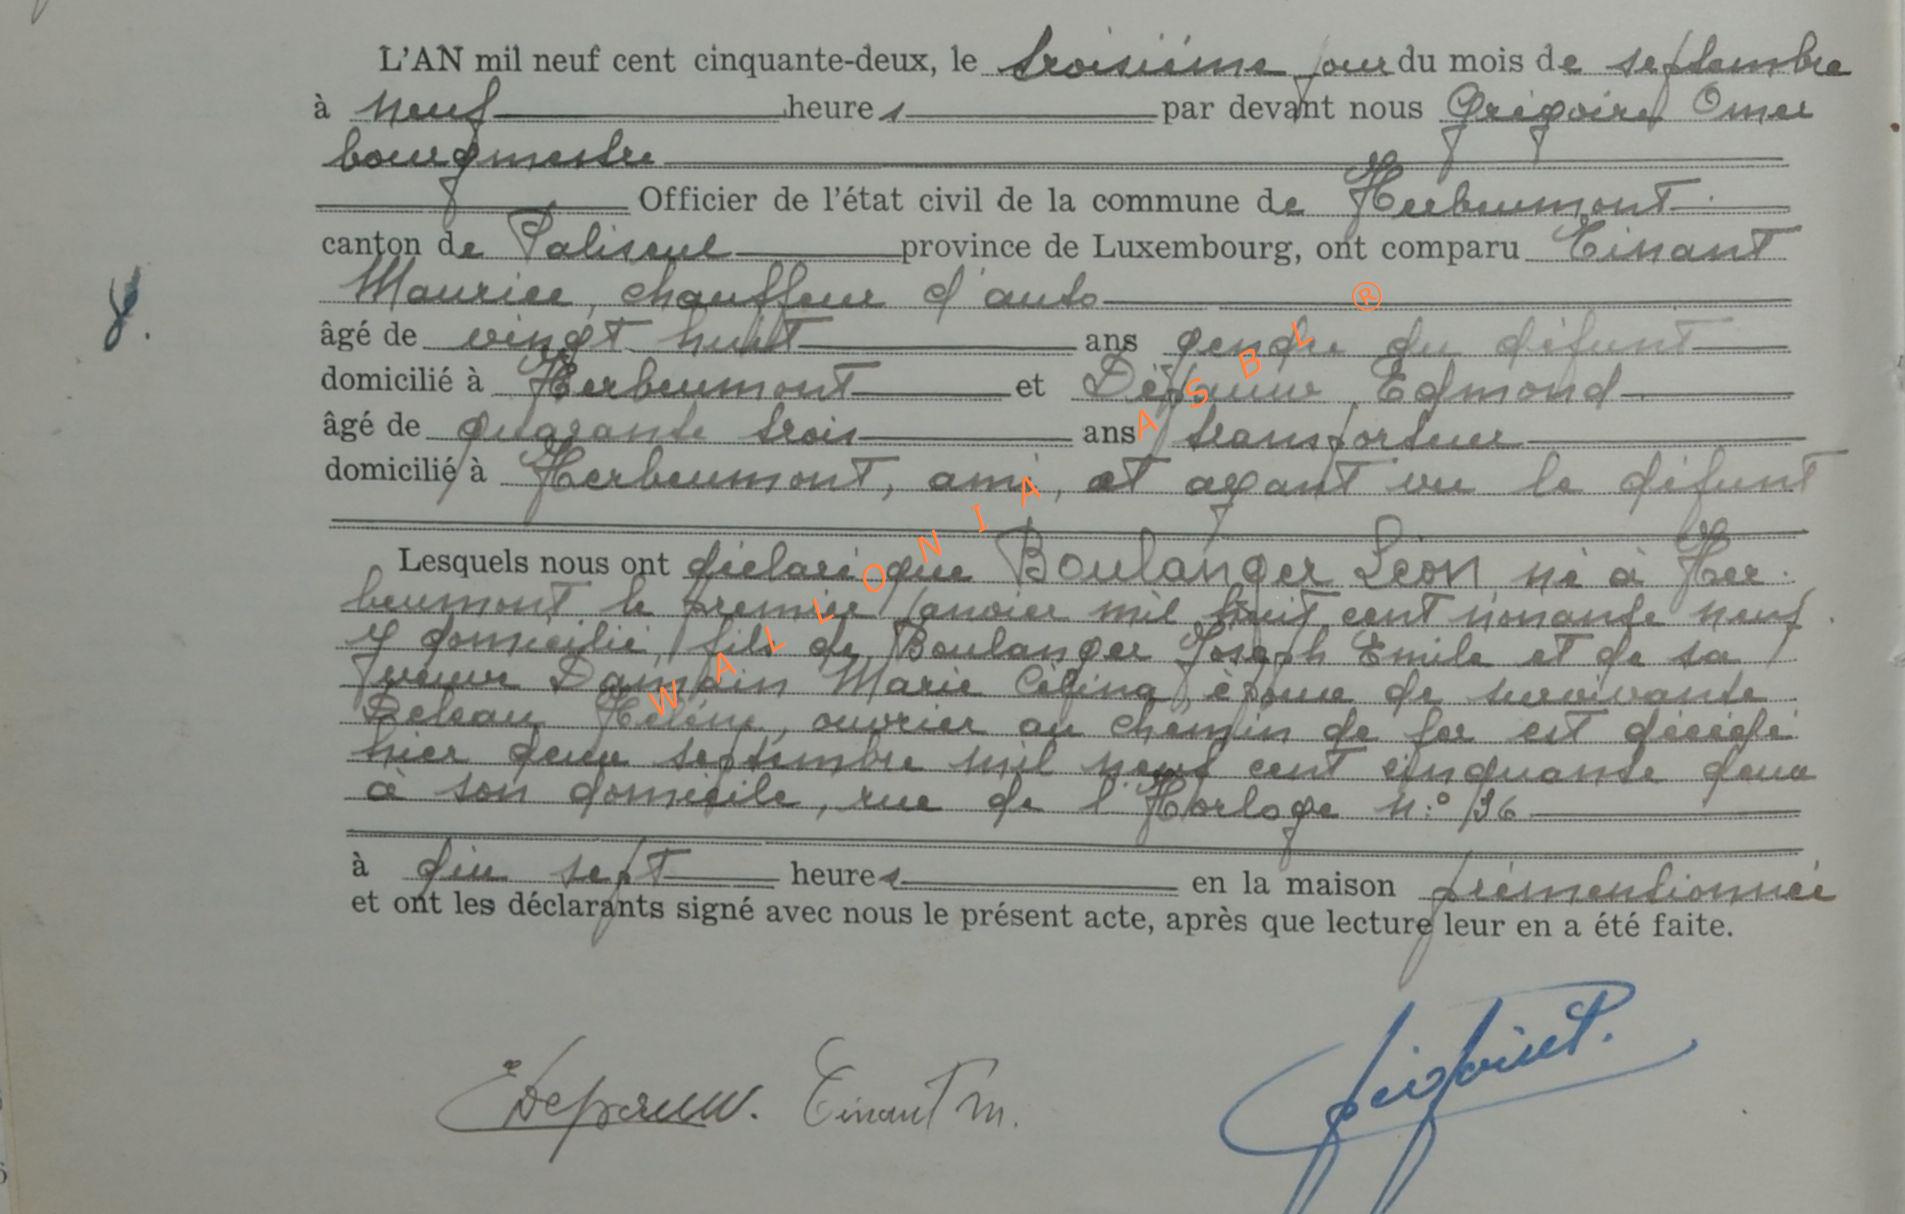 L'AN mil neuf cent cinquante-deux, le troisième jour du mois de septembre
à neuf heures par devant nous Grégoire Omer
bourgmestre
Officier de l'état civil de la commune de Herbeumont
canton de Paliseul province de Luxembourg, ont comparu Tinant
Maurice, chauffeur d'auto
âgé de vingt huit ans gendre du défunt
domicilié à Herbeumont et Edmond
âgé de quarante trois ans transporteur
domicilié à Herbeumont, ami, et ayant vu le défunt
8.
Lesquels nous ont déclaré que Boulanger Léon né à Her
beumont le premier janvier mil huit cent nonante neuf
y domicilié, fils de Boulanger Joseph Emile et de sa
veuve Marie époux de survivante
Hélène, ouvrier au chemin de fer est décédé
hier deux septembre mil neuf cent cinquante deux
à son domicile, rue de l'Horloge n:° 36
à dix sept heures en la maison prémentionnée
et ont les déclarants signé avec nous le présent acte, après que lecture leur en a été faite.
Tinant M.
WALLONIA ASBL ®